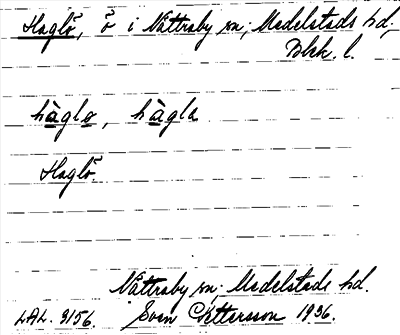 Haglö, ö i Nättraby sn, Medelstads hd,
Blek. l.
hàglo, hàgla
Haglö.
Nättraby sn, Medelstads hd.
LAL. 3156. Sven Pettersson 1936.